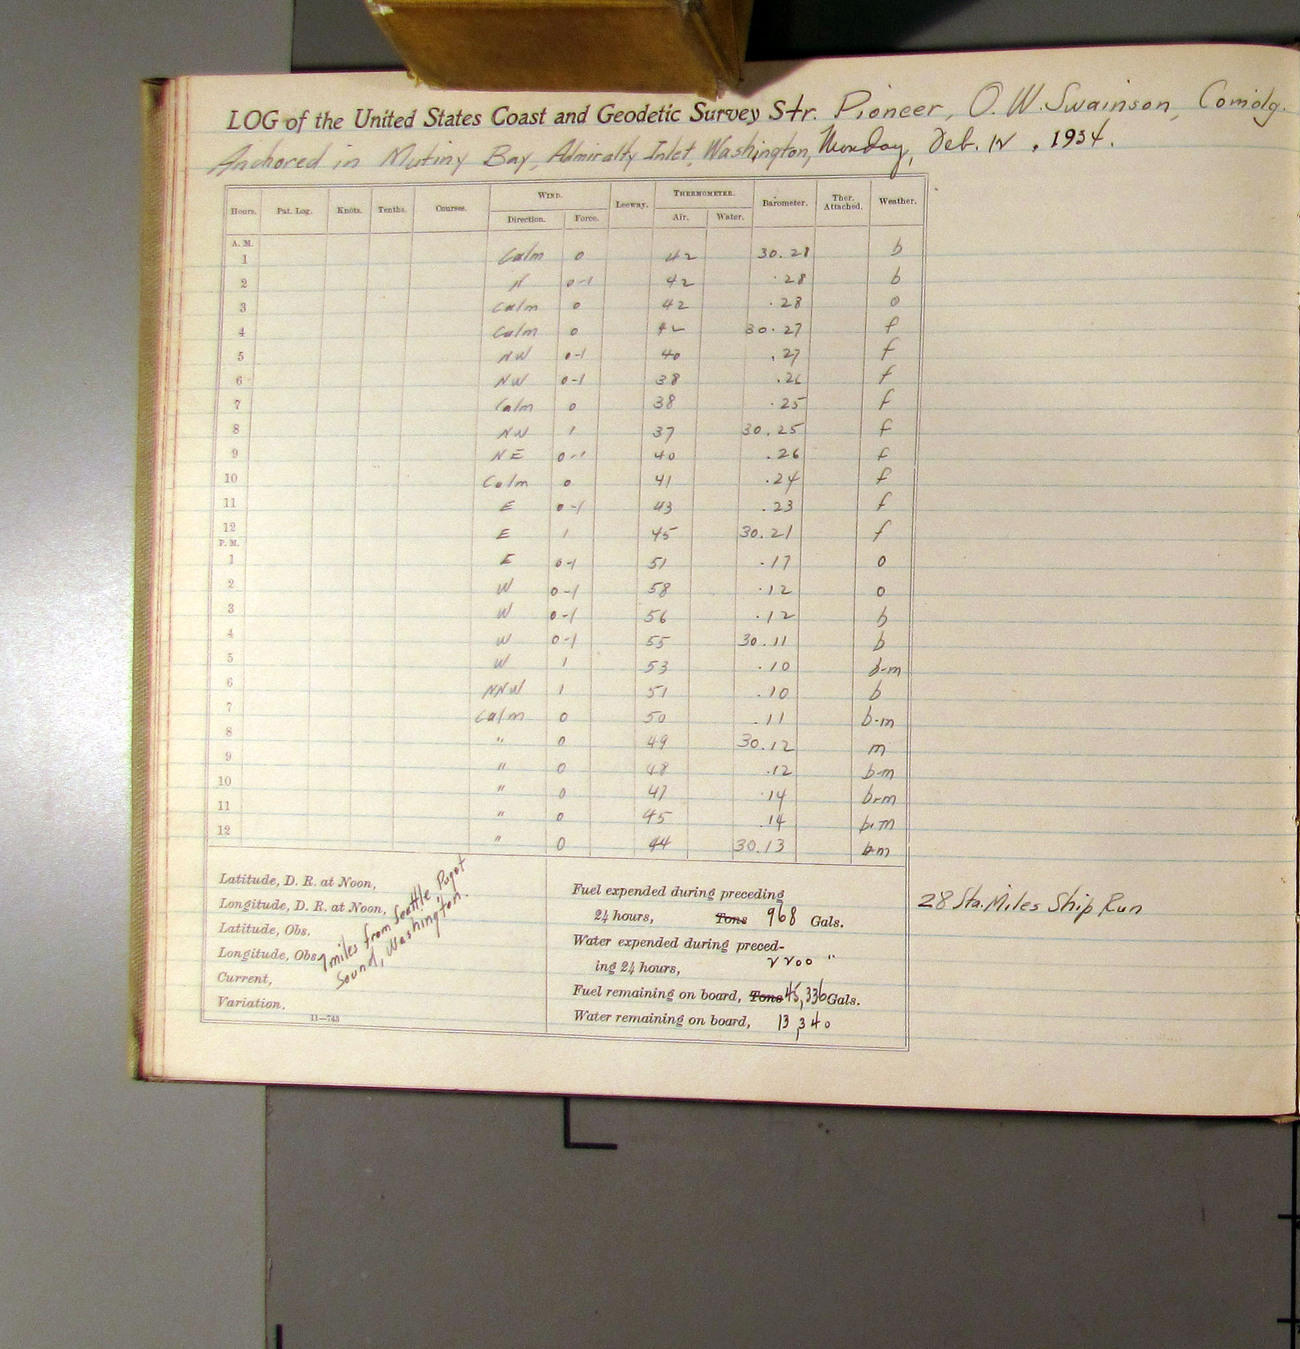 LOG of the United States Coast and Geodetic Survey Str. Pioneer, O. W. Swainson, Comdg.
Anchored in Mutiny Bay, Admiralty Inlet, Washington, Monday, Feb. 12, 1934.
Hours. Pat. Log. Knots. Tenths. Courses. WIND. Direction. Force. Leeway. THERMOMETER. Air. Water. Barometer. Ther. Attached. Weather.
A. M.
1 Calm 0 42 30.28 b
2 N 0-1 42 .28 b
3 Calm 0 42 .28 o
4 Calm 0 42 30.27 f
5 NW 0-1 40 .27 f
6 NW 0-1 38 .26 f
7 Calm 0 38 .25 f
8 NW 1 37 30.25 f
9 NE 0-1 40 .26 f
10 Calm 0 41 .24 f
11 E 0-1 43 .23 f
12 E 1 45 30.21 f
P. M.
1 E 0-1 51 .17 o
2 W 0-1 58 .12 o
3 W 0-1 56 .12 b
4 W 0-1 55 30.11 b
5 W 1 53 .10 b-m
6 NNW 1 51 .10 b
7 Calm 0 50 .11 b-m
8 " 0 49 30.12 m
9 " 0 48 .12 b-m
10 " 0 47 .14 b-m
11 " 0 45 .14 b-m
12 " 0 44 30.13 b-m
Latitude, D. R. at Noon,
Longitude, D. R. at Noon,
Latitude, Obs.
Longitude, Obs.
Current,
Variation.
miles from Seattle, Puget
Sound, Washington.
11—743
Fuel expended during preceding
24 hours, Tons 968 Gals.
Water expended during preced-
ing 24 hours, 2200 "
Fuel remaining on board, Tons 45,336 Gals.
Water remaining on board, 13,340
28 Sta. Miles Ship Run